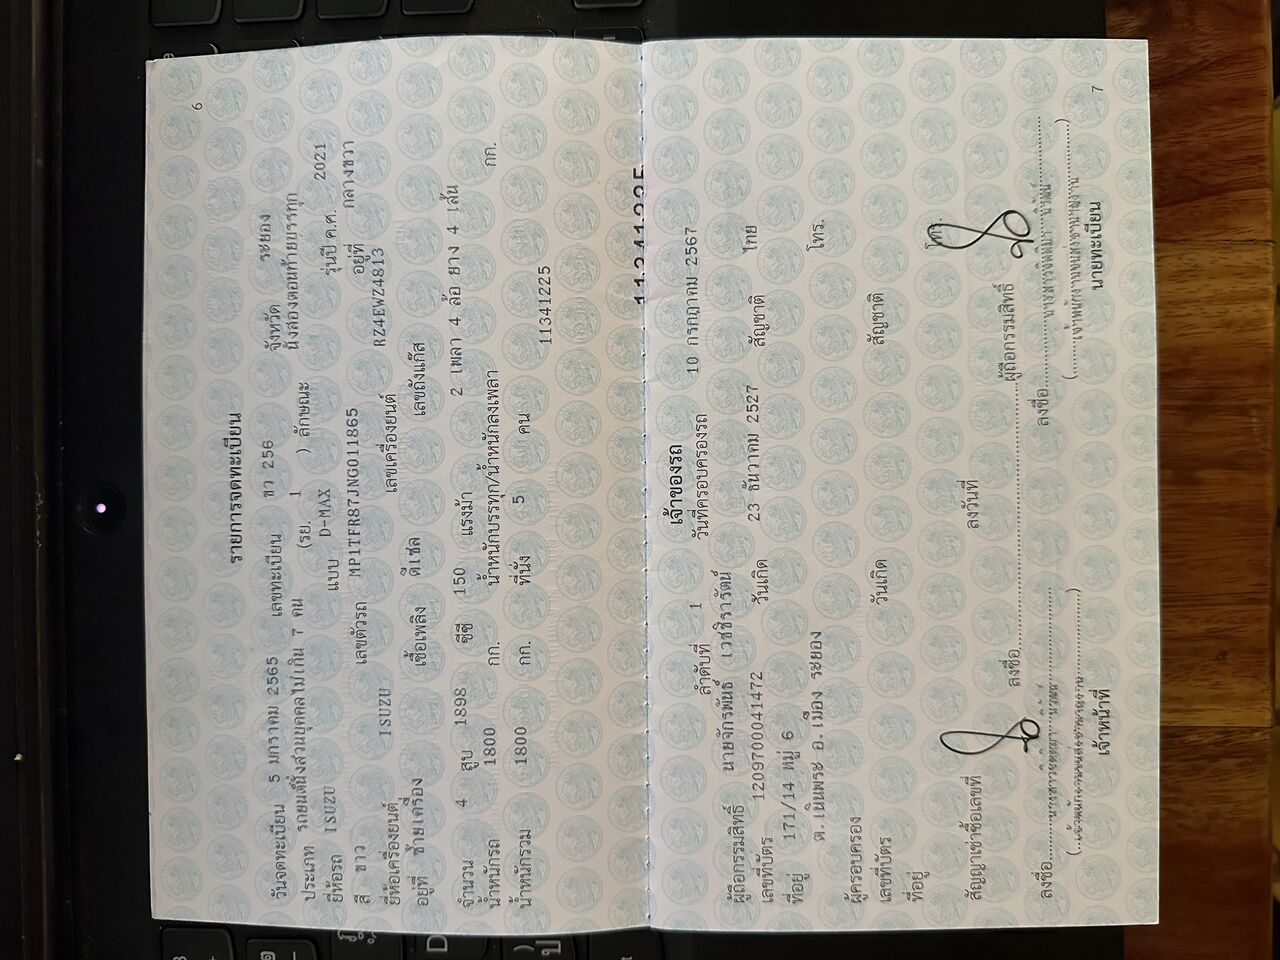 6
รายการจดทะเบียน
วันจดทะเบียน 5 มกราคม 2565 เลขทะเบียน ขว 256 จังหวัด ระยอง
ประเภท รถยนต์นั่งส่วนบุคคลไม่เกิน 7 คน (รย. 1 ) ลักษณะ นั่งสองตอนท้ายบรรทุก
ยี่ห้อรถ ISUZU แบบ D-MAX รุ่นปี ค.ศ. 2021
สี ขาว เลขตัวรถ MP1TFR87JNG011865 อยู่ที่ กลางขวา
ยี่ห้อเครื่องยนต์ ISUZU เลขเครื่องยนต์ RZ4EWZ4813
อยู่ที่ ซ้ายเครื่อง เชื้อเพลิง ดีเซล เลขถังแก๊ส
จำนวน 4 สูบ 1898 ซีซี 150 แรงม้า 2 เพลา 4 ล้อ ยาง 4 เส้น
น้ำหนักรถ 1800 กก. น้ำหนักบรรทุก/น้ำหนักลงเพลา กก.
น้ำหนักรวม 1800 กก. ที่นั่ง 5 คน
11341225
11341225
เจ้าของรถ
ลำดับที่ 1 วันที่ครอบครองรถ 10 กรกฎาคม 2567
ผู้ถือกรรมสิทธิ์ นายจักรพันธ์ เวชชิรารัตน์
เลขที่บัตร 1209700041472 วันเกิด 23 ธันวาคม 2527 สัญชาติ ไทย
ที่อยู่ 171/14 หมู่ 6 โทร.
ต.เนินพระ อ.เมือง ระยอง
ผู้ครอบครอง
เลขที่บัตร วันเกิด สัญชาติ
ที่อยู่ โทร.
สัญญาเช่าซื้อเลขที่ ลงวันที่ ผู้ถือกรรมสิทธิ์
ลงชื่อ
ลงชื่อ ลงชื่อ
เจ้าหน้าที่ นายทะเบียน
7